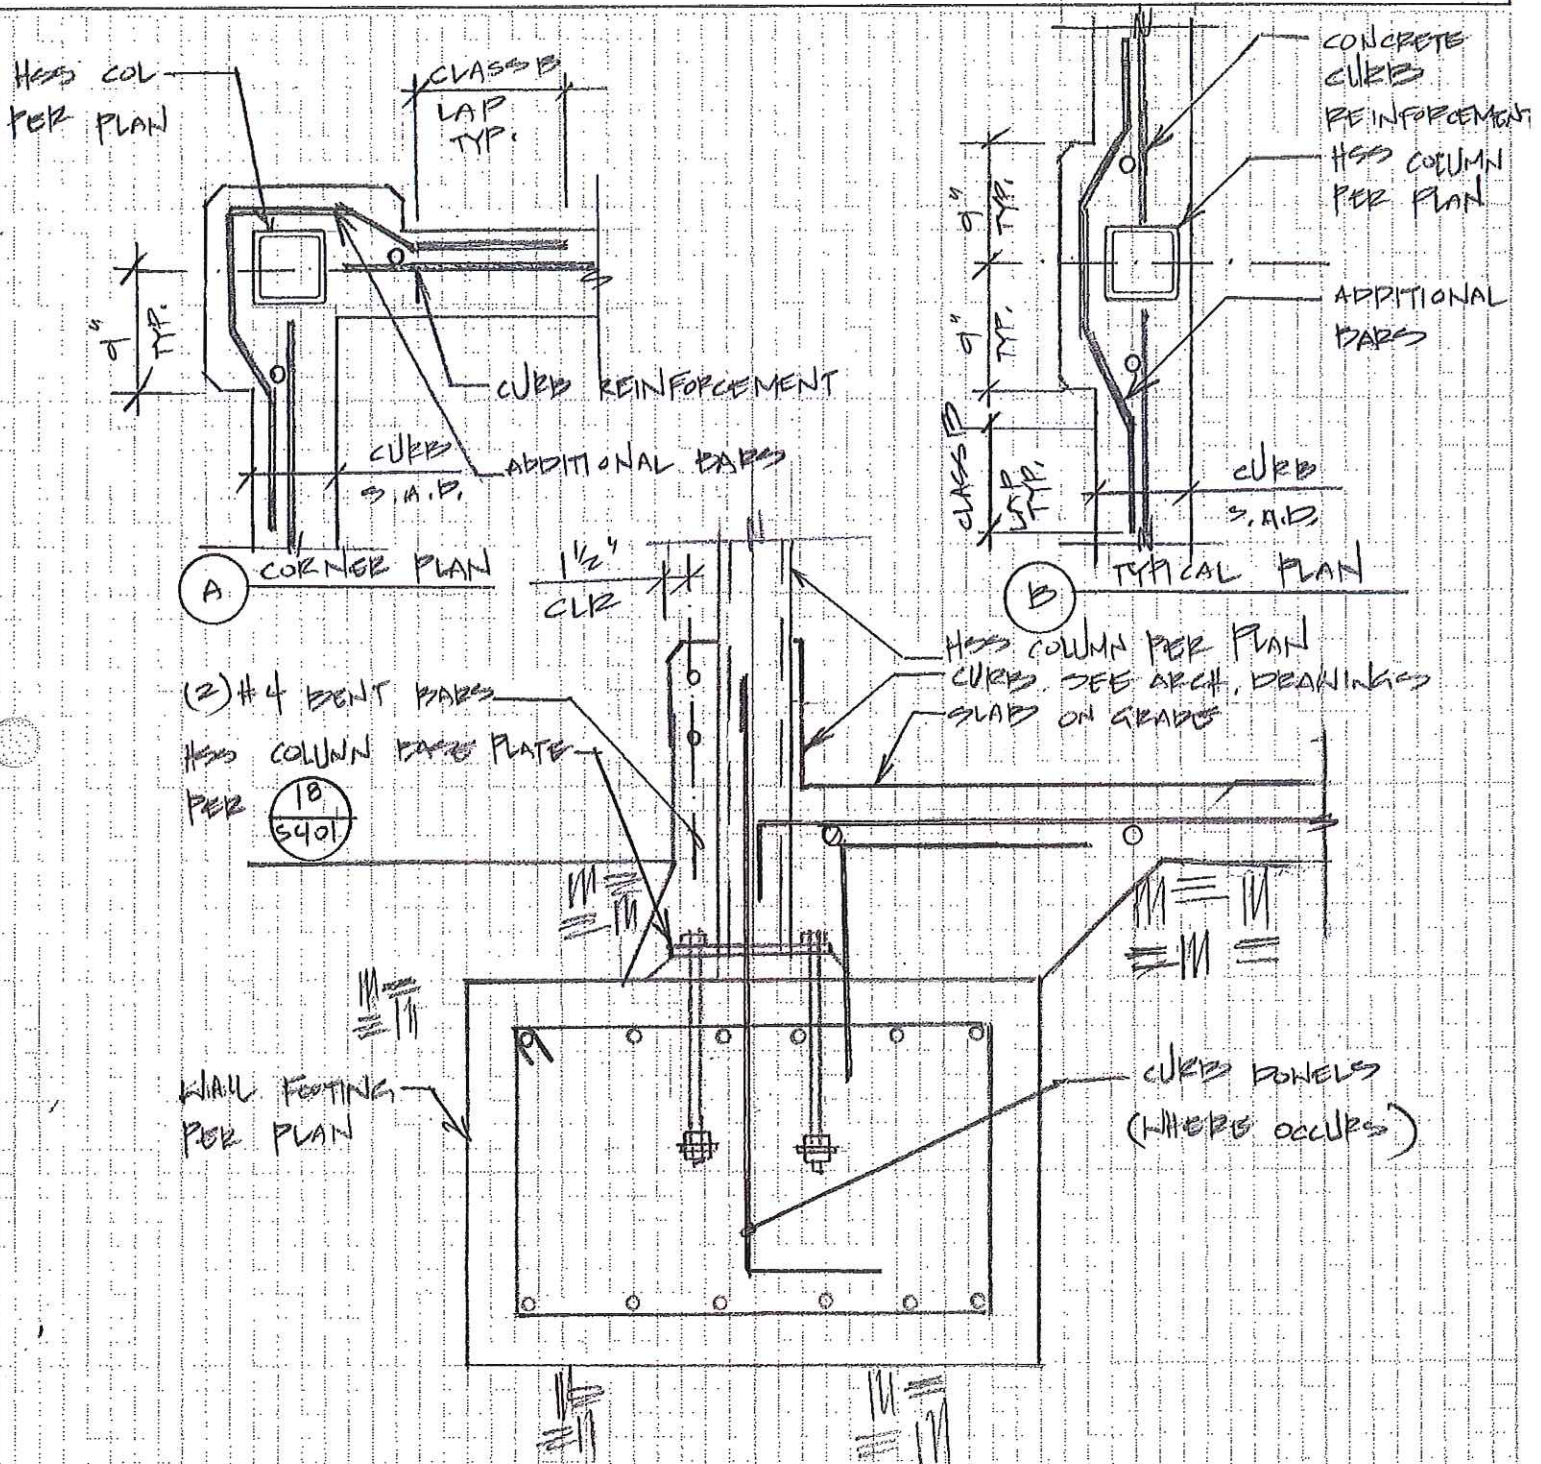 HSS COL
PER PLAN
CLASS B
LAP
TYP.
9"
TYP.
CURB REINFORCEMENT
ADDITIONAL BARS
CURB
S.A.D.
A
CORNER PLAN
CONCRETE
CURB
REINFORCEMENT
HSS COLUMN
PER PLAN
9"
TYP.
9"
TYP.
ADDITIONAL
BARS
CLASS B
LAP
TYP.
CURB
S.A.D.
B
TYPICAL PLAN
1 1/2"
CLR
HSS COLUMN PER PLAN
CURB. SEE ARCH. DRAWINGS
SLAB ON GRADE
(2) #4 BENT BARS
HSS COLUMN BASE PLATE
PER
18
S401
WALL FOOTING
PER PLAN
CURB DOWELS
(WHERE OCCURS)